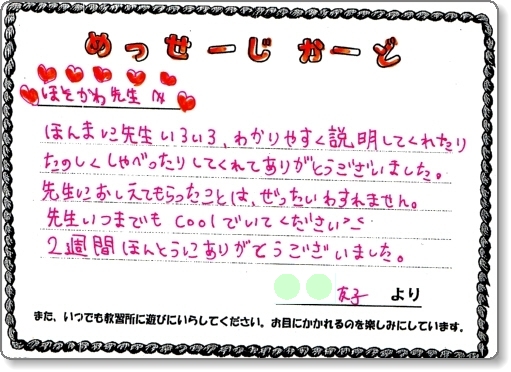 めっせーじ かーど
ほそかわ先生 へ
ほんまに先生いろいろ、わかりやすく説明してくれたり
たのしくしゃべったりしてくれてありがとうございました。
先生におしえてもらったことは、ぜったいわすれません。
先生いつまでもcoolでいてください><
2週間ほんとうにありがとうございました。
友子 より
また、いつでも教習所に遊びにいらしてください。お目にかかれるのを楽しみにしています。